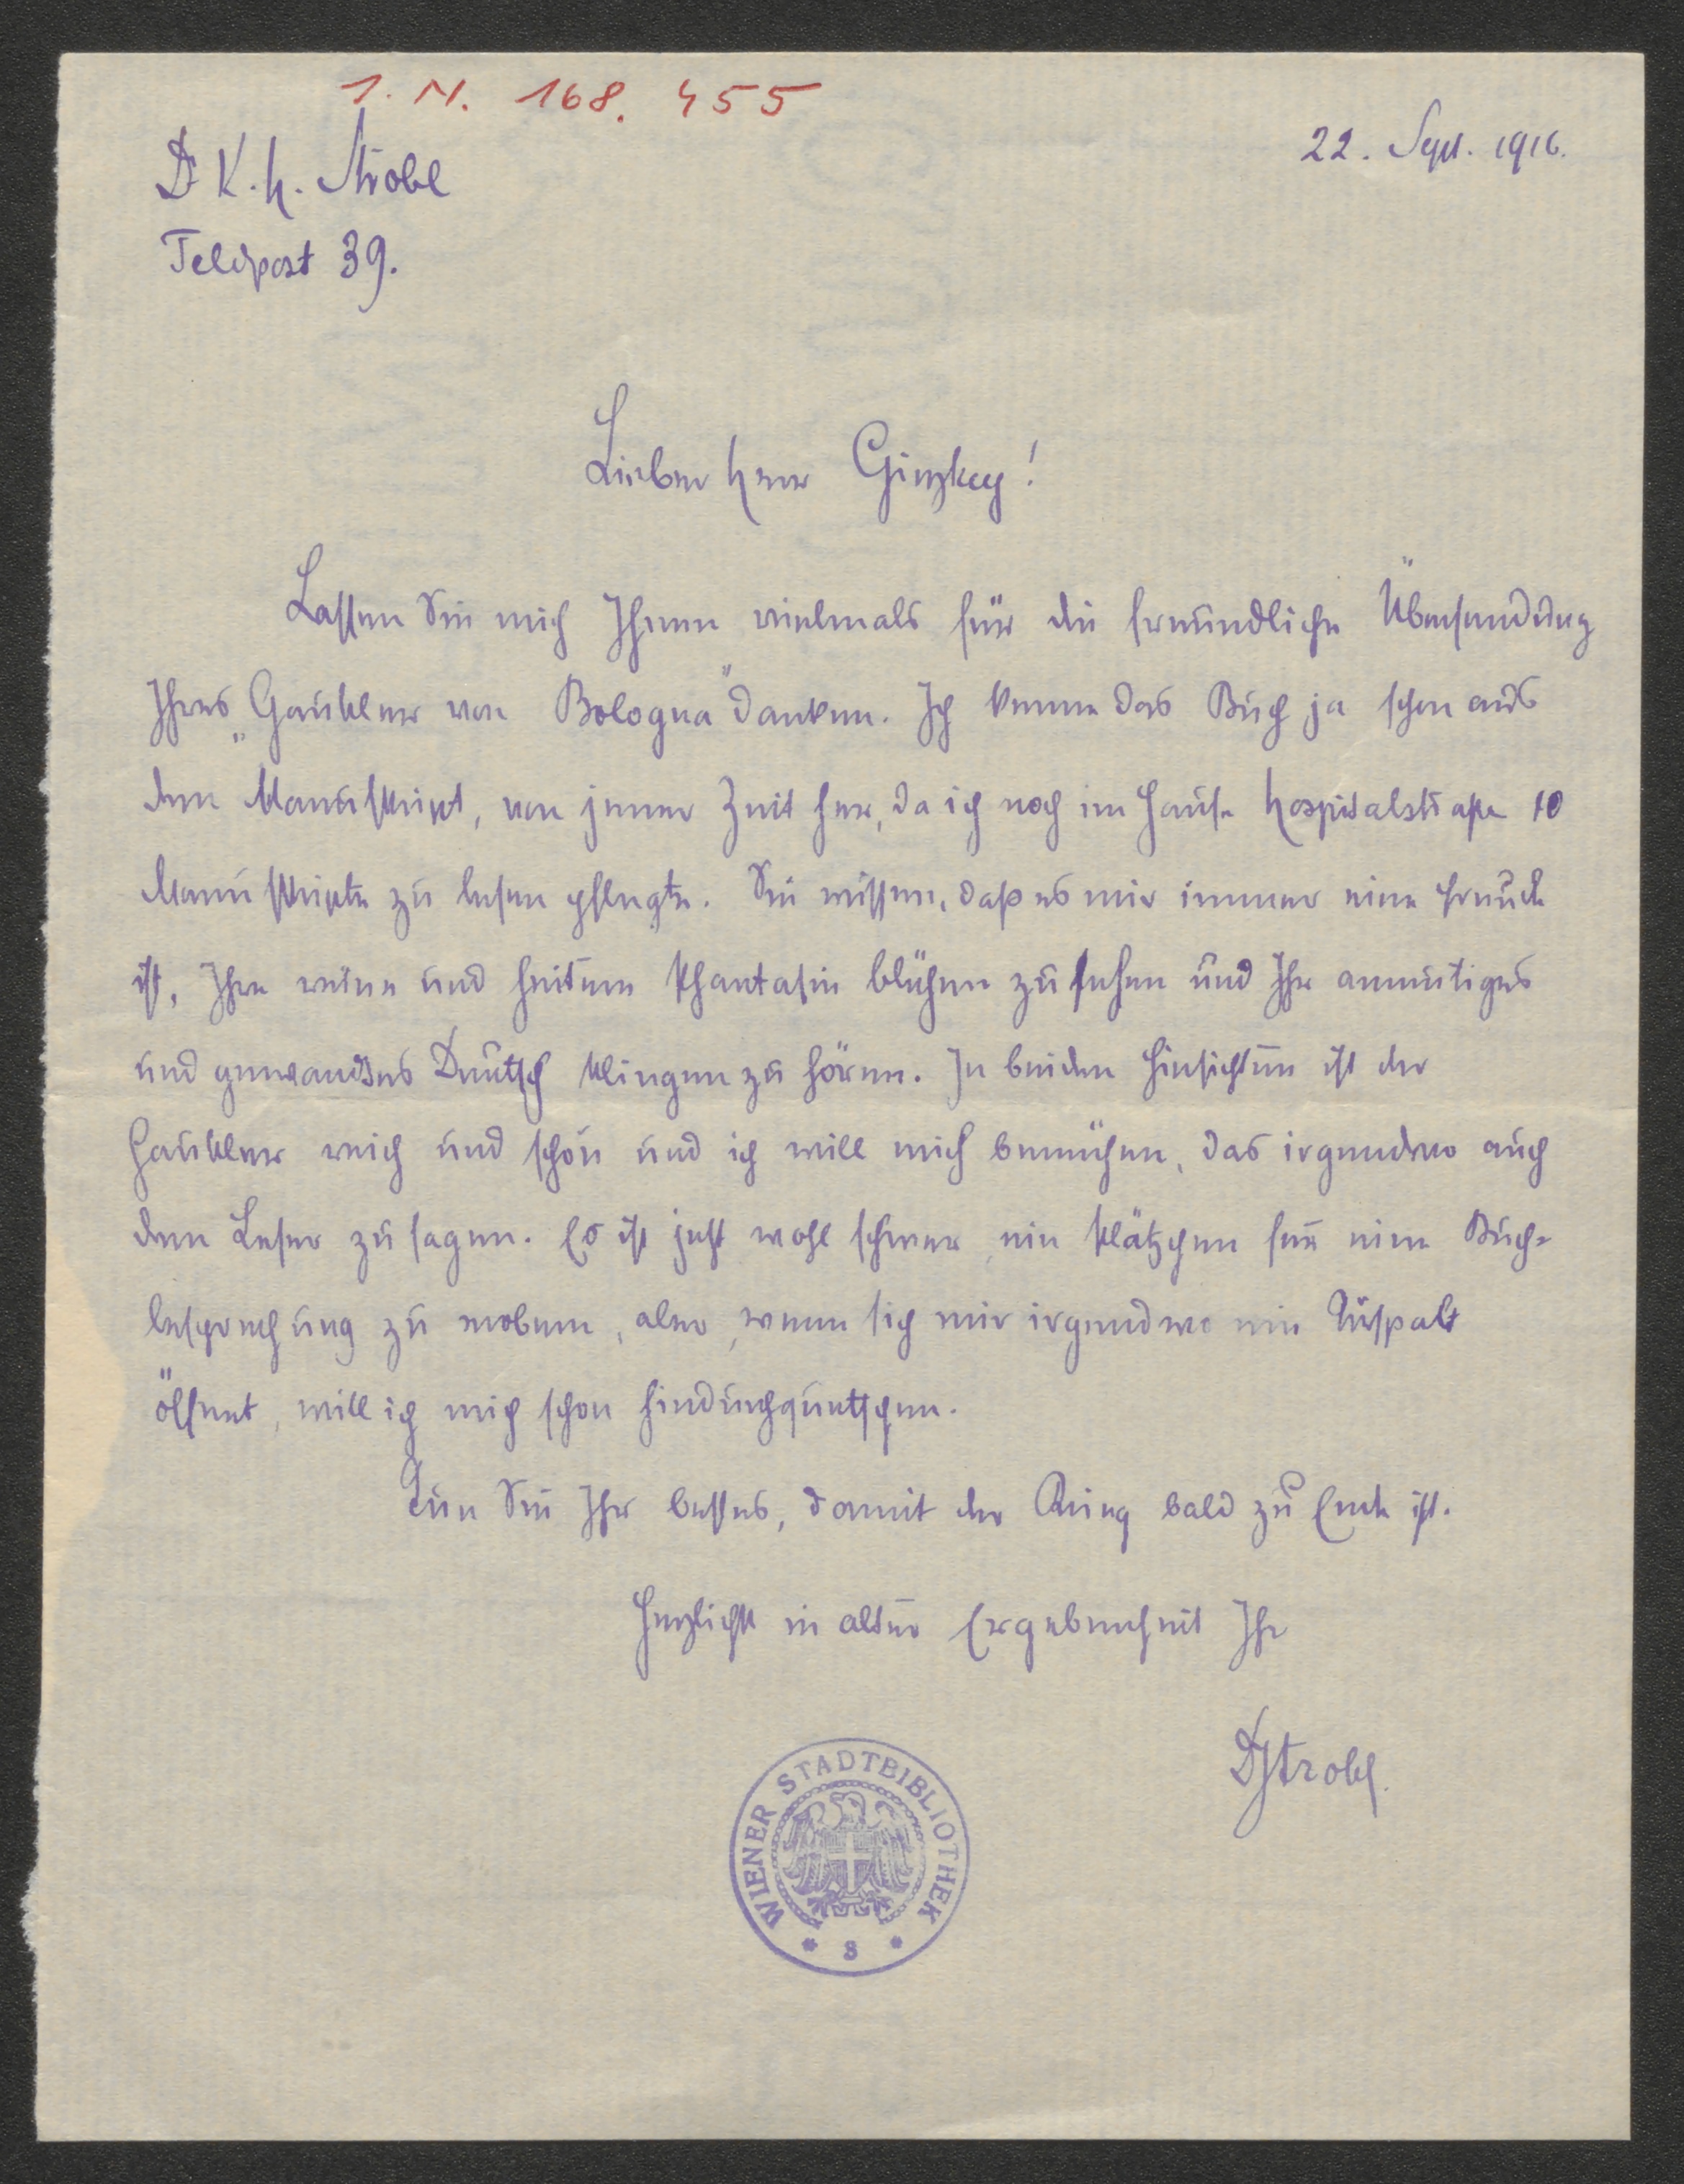 I. N. 168.455
22. Sept. 1916.
Dr K. H. Strobl
Feldpost 39.
Lieber Herr Ginzkey!
Lassen Sie mich Ihnen vielmals für die freundliche Übersendung
Ihres „Gaukler von Bologna" danken. Ich kenne das Buch ja schon aus
dem Manuskript, von jener Zeit her, da ich noch im Hause Hospitalstraße 10
Manuskripte zu lesen pflegte. Sie wissen, daß es mir immer eine Freude
ist, Ihre reine und heitere Phantasie blühen zu sehen und Ihr anmutiges
und gewandtes Deutsch klingen zu hören. In beiden Hinsichten ist der
Gaukler reich und schön und ich will mich bemühen, das irgendwo auch
dem Leser zu sagen. Es ist jetzt wohl schwer, ein Plätzchen für eine Buch-
besprechung zu erobern, aber, wenn sich mir irgendwo ein Türspalt
öffnet, will ich mich schon hindurchquetschen.
Tun Sie Ihr bestes, damit der Krieg bald zu Ende ist.
Herzlichst in alter Ergebenheit Ihr
DrStrobl.
WIENER STADTBIBLIOTHEK
* S *